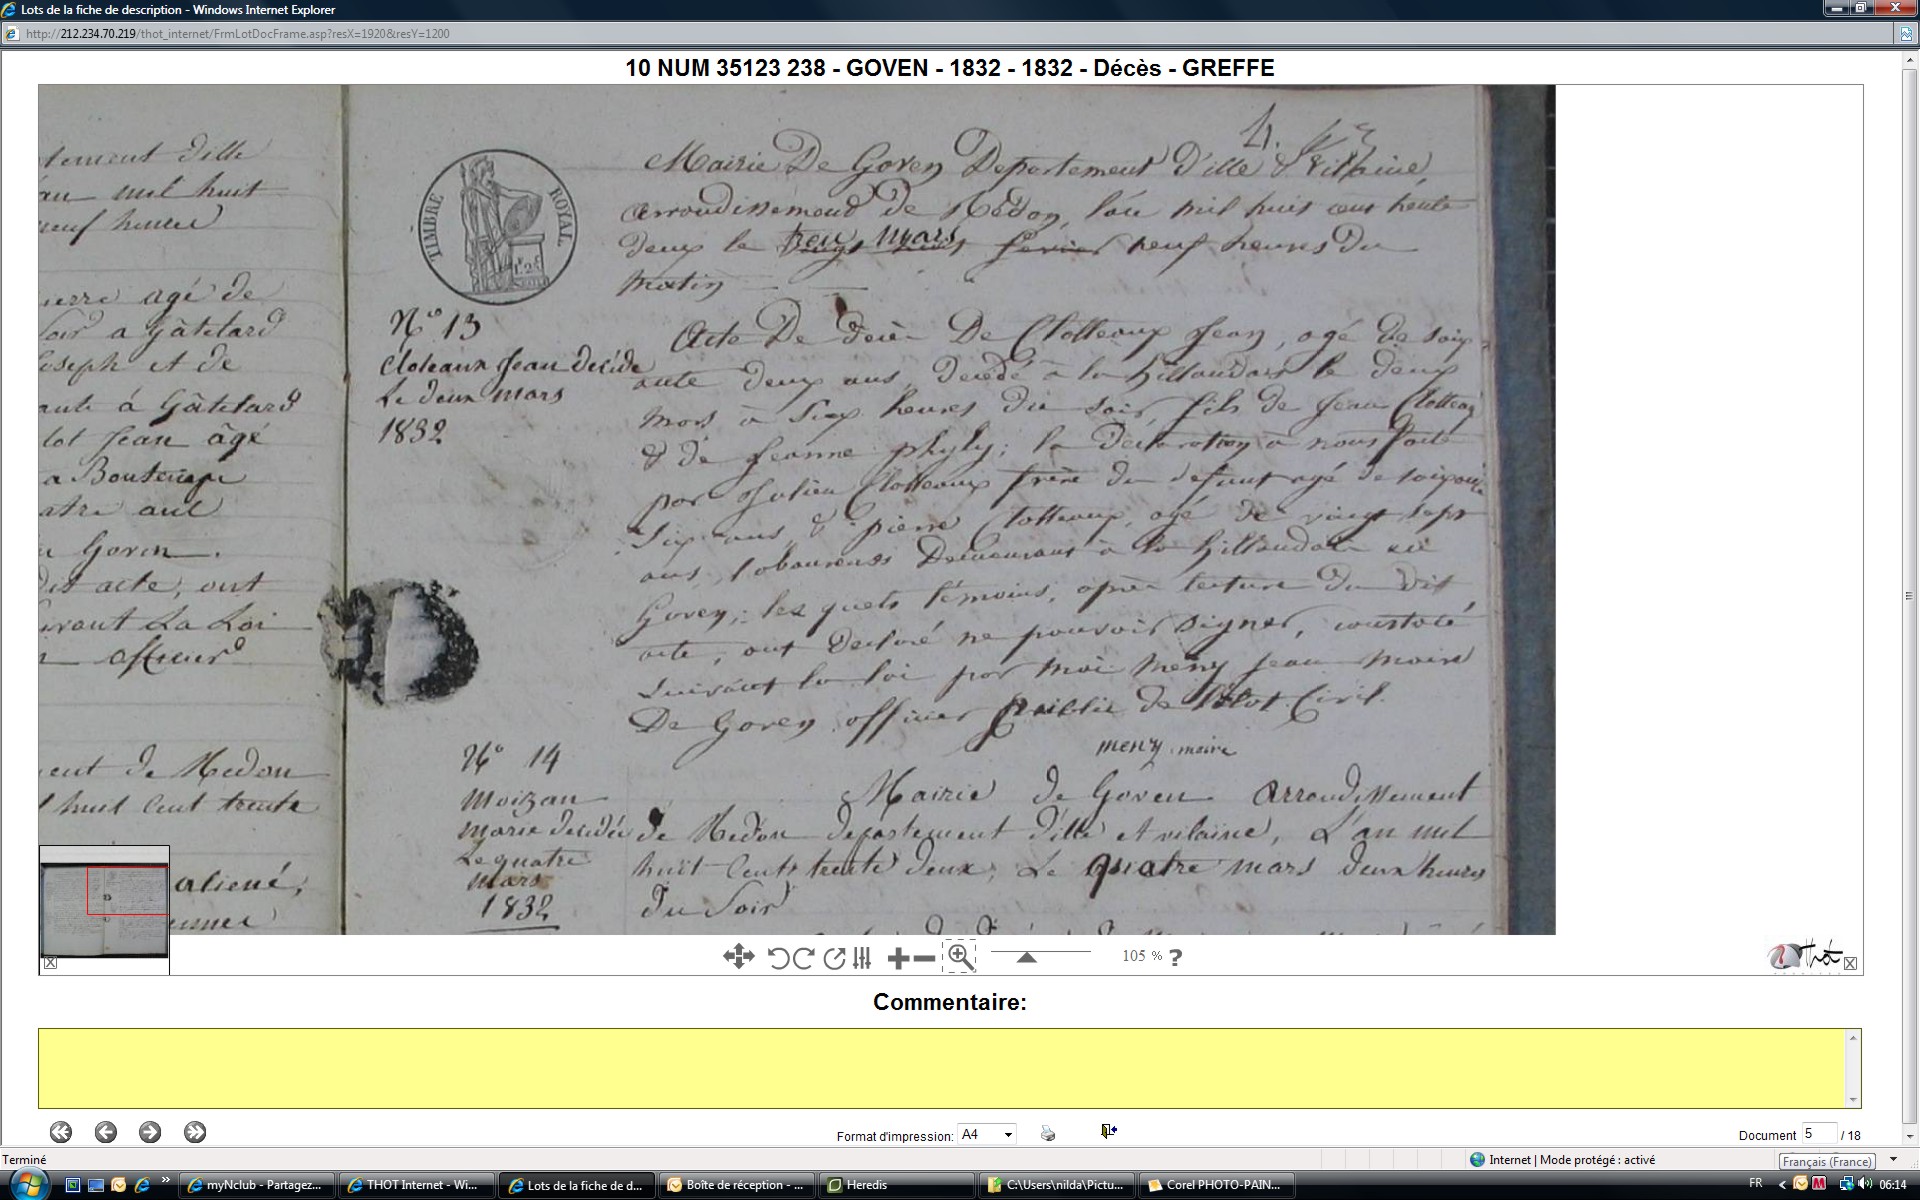 Lots de la fiche de description - Windows Internet Explorer
http://212.234.70.219/thot_internet/FrmLotDocFrame.asp?resX=1920&resY=1200
10 NUM 35123 238 - GOVEN - 1832 - 1832 - Décès - GREFFE
tement dille
an mil huit
neuf heures
ierre agé de
soir a Gâtelard
Joseph et de
ante à Gâtelard
lot Jean âgé
a
atre ans
Goven.
dit acte, ont
ivant La Loi
officier
ent de Redon
l huit Cent trente
aliené,
TIMBRE ROYAL
Mairie De Goven Departement D'ille & Vilaine
arrondissement de Redon, l'an mil huit cent trente
deux le trois mars neuf heures Du
matin
N° 13
Cloteaux Jean décédé
Le deux mars
1832
Acte De décè De Clotteaux Jean, agé de soix
ante deux ans, Décédé à la hillaudais le deux
mars à Six heures du soir fils de Jean Clotteaux
& de Jeanne phyly; la Déclaration à nous faite
par Julien Clotteaux frère du defunt agé de soixante
Six ans, & pierre Clotteaux, agé de vingt sept
ans, laboureurs Demeurant à la hillaudais en
Goven; les quels témoins, après lecture du dit
acte, ont declaré ne pouvoir signer, constaté
suivant la loi par moi meny Jean maire
De Goven officier public de l'état Civil.
meny maire
N° 14
Moizan
Marie décédée
Le quatre
Mars
1832
Mairie de Goven arrondissement
de Redon departement d'ille et vilaine, L'an mil
huit Cents trente deux, Le quatre mars deux heures
du Soir
105 % ?
Thot
Commentaire:
Format d'impression: A4
Document 5 / 18
Terminé
Internet | Mode protégé : activé
Français (France)
myNclub - Partagez...
THOT Internet - Wi...
Lots de la fiche de d...
Boîte de réception - ...
Heredis
C:\Users\nilda\Pictu...
Corel PHOTO-PAIN...
FR
06:14